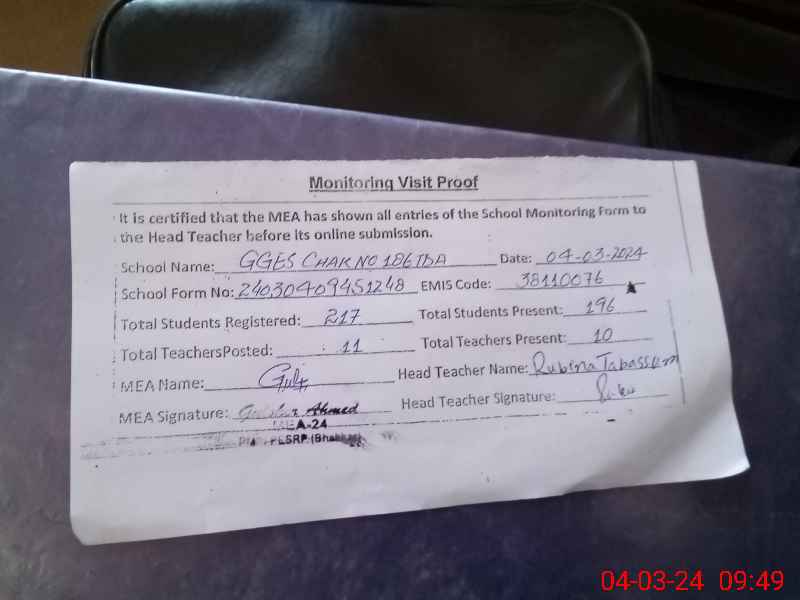 Monitoring Visit Proof
It is certified that the MEA has shown all entries of the School Monitoring Form to
the Head Teacher before its online submission.
School Name: GGES CHAK NO 186 TDA Date: 04-03-2024
School Form No: 24030409451248 EMIS Code: 38110076
Total Students Registered: 217 Total Students Present: 196
Total TeachersPosted: 11 Total Teachers Present: 10
MEA Name: Head Teacher Name: Rubina Tabassum
MEA Signature: Ahmed Head Teacher Signature:
MEA-24
PLSRP (Bhakkar)
04-03-24 09:49